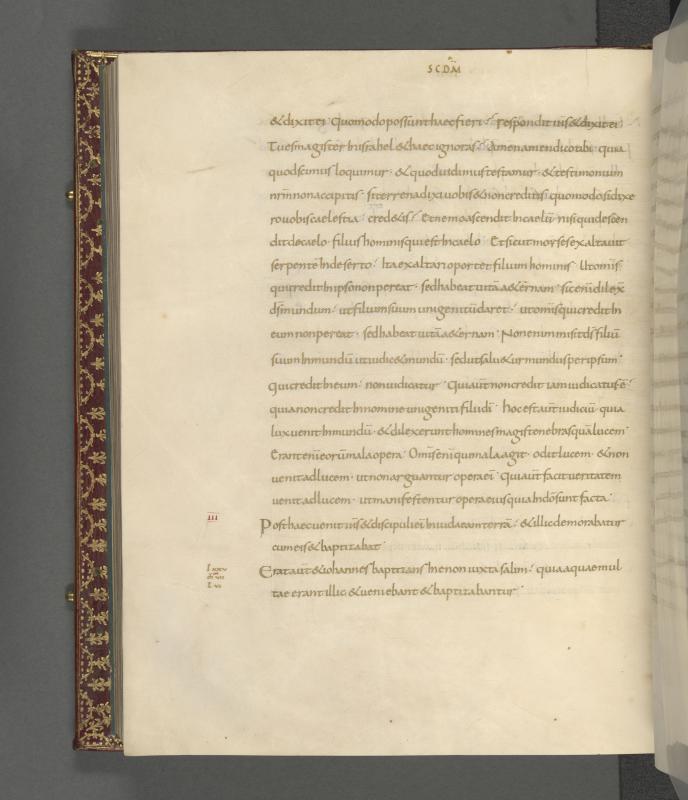 SCDM̄
&dixit ei · Quomodo possunt haec fieri · respondit ih̄s &dixit ei ·
Tu es magister in israhel &haec ignoras · Amen amen dico tibi · quia
quod scimus loquimur · &quod uidimus testamur · &testimonium
nr̄m non accipitis · si terrena dixi uobis &non creditis · quomodo si dixe
ro uobis caelestia · cred&is · Et nemo ascendit in caelū · nisi qui descen
dit de caelo · filius hominis qui est in caelo · Et sicut moyses exaltauit
serpentē in deserto · Ita exaltari oport& filium hominis · Ut omīs
qui credit in ipso non pereat · sed habeat uitā a&ernam · sic enī dilex̄
ds̄ mundum · ut filium suum unigenitū daret · ut omīs qui credit in
eum non pereat · sed habeat uitā a&ernam · Non enim misit ds̄ filiū
suum in mundū ut iudic& mundū · sed ut salu&ur mundus per ipsum ·
Qui credit in eum · non iudicatur · Qui aūt non credit iam iudicatus ē ·
quia non credit in nomine unigeniti filii dī · hoc est aūt iudiciū · quia
lux uenit in mundū · &dilexerunt homines magis tenebras quā lucem ·
Erant enī eorū mala opera · Omīs enī qui mala agit · odit lucem · &non
uenit ad lucem · ut non arguantur opera eī · qui aūt facit ueritatem
uenit ad lucem · ut manifestentur opera eius quia in dō sunt facta ·
III
Post haec uenit ih̄s &discipuli eī in iudaeam terrā · &illic demorabatur
cum eis &baptizabat ·
Erat aūt &iohannes baptizans in enon iuxta salim · quia aquae mul
tae erant illic · &ueniebant &baptizabantur ·